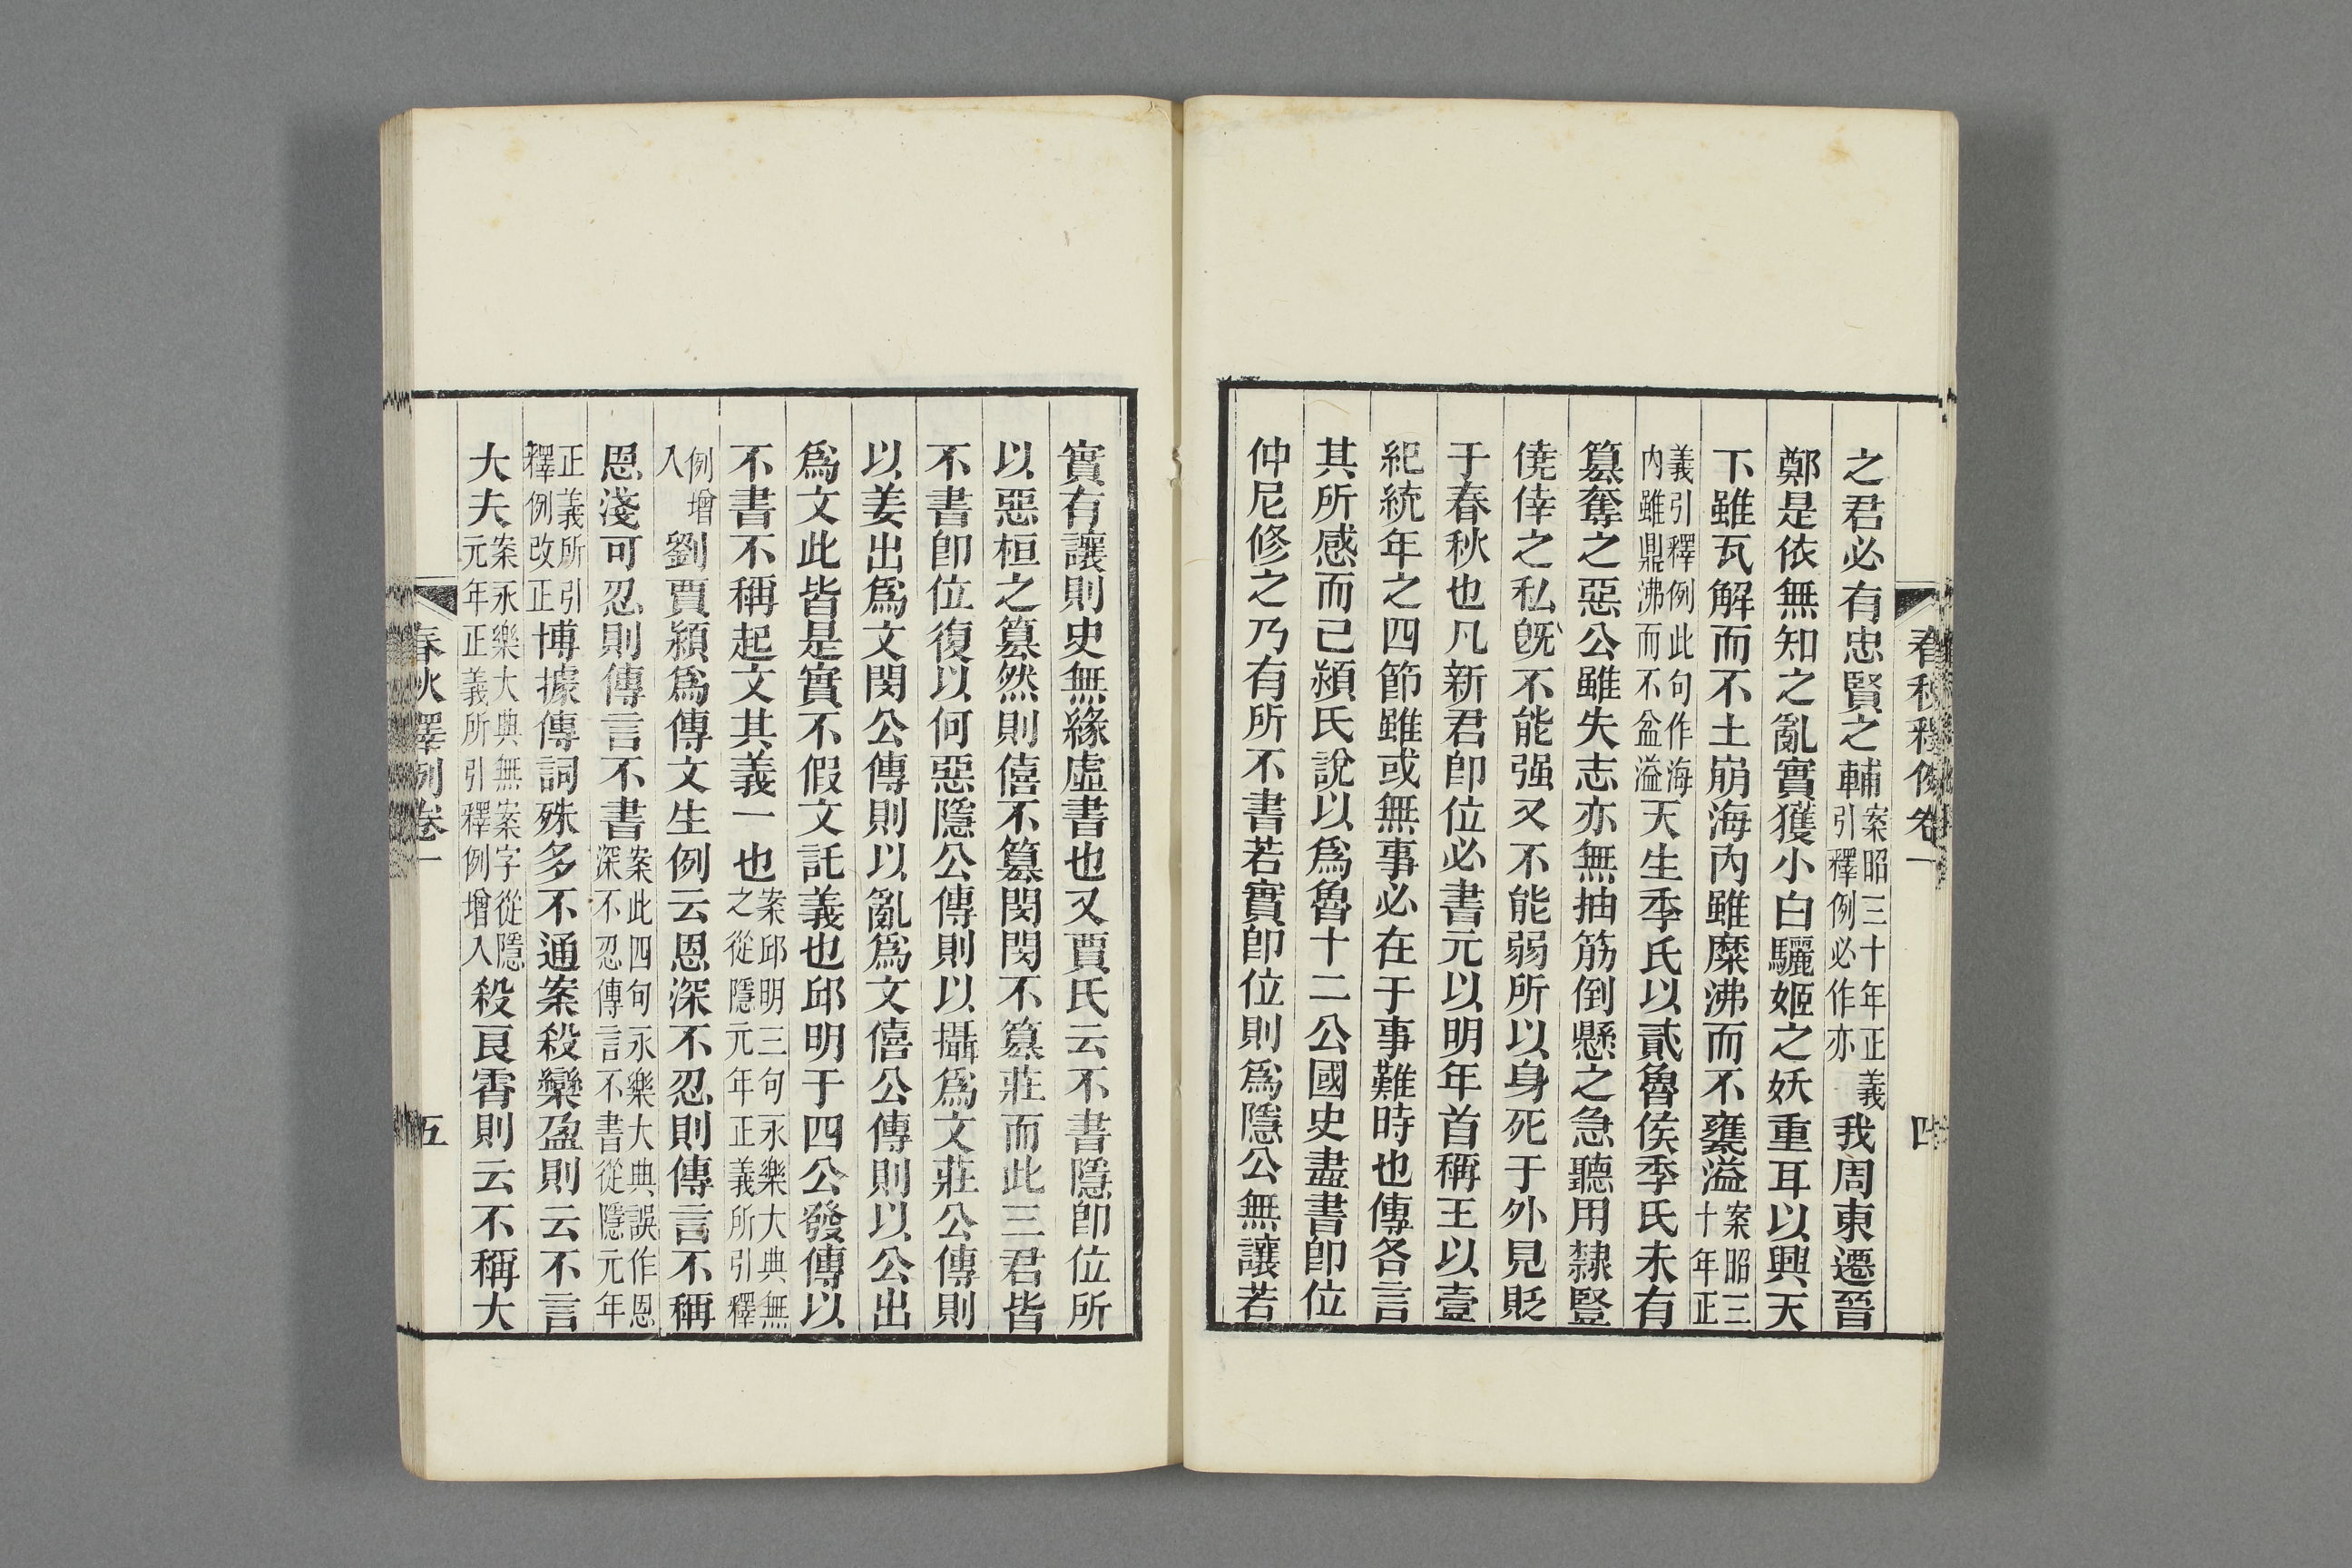 春秋釋例卷一
四
之君必有忠賢之輔案昭三十年正義引釋例必作亦我周東遷晉
鄭是依無知之亂實獲小白驪姬之妖重耳以興天
下雖瓦解而不土崩海內雖糜沸而不甕溢案昭三十年正
義引釋例此句作海內雖鼎沸而不盆溢天生季氏以貳魯侯季氏未有
簒奪之惡公雖失志亦無抽筋倒懸之急聽用隸豎
僥倖之私旣不能强又不能弱所以身死于外見貶
于春秋也凡新君卽位必書元以明年首稱王以壹
紀統年之四節雖或無事必在于事難時也傳各言
其所感而已潁氏說以爲魯十二公國史盡書卽位
仲尼修之乃有所不書若實卽位則爲隱公無讓若
實有讓則史無緣虛書也又賈氏云不書隱卽位所
以惡桓之簒然則僖不簒閔閔不簒莊而此三君皆
不書卽位復以何惡隱公傳則以攝爲文莊公傳則
以姜出爲文閔公傳則以亂爲文僖公傳則以公出
爲文此皆是實不假文託義也邱明于四公發傳以
不書不稱起文其義一也案邱明三句永樂大典無之從隱元年正義所引釋
例增入劉賈潁爲傳文生例云恩深不忍則傳言不稱
恩淺可忍則傳言不書案此四句永樂大典誤作恩深不忍傳言不書從隱元年
正義所引釋例改正博據傳詞殊多不通案殺欒盈則云不言
大夫案永樂大典無案字從隱元年正義所引釋例增入殺良霄則云不稱大
春秋釋例卷一
五